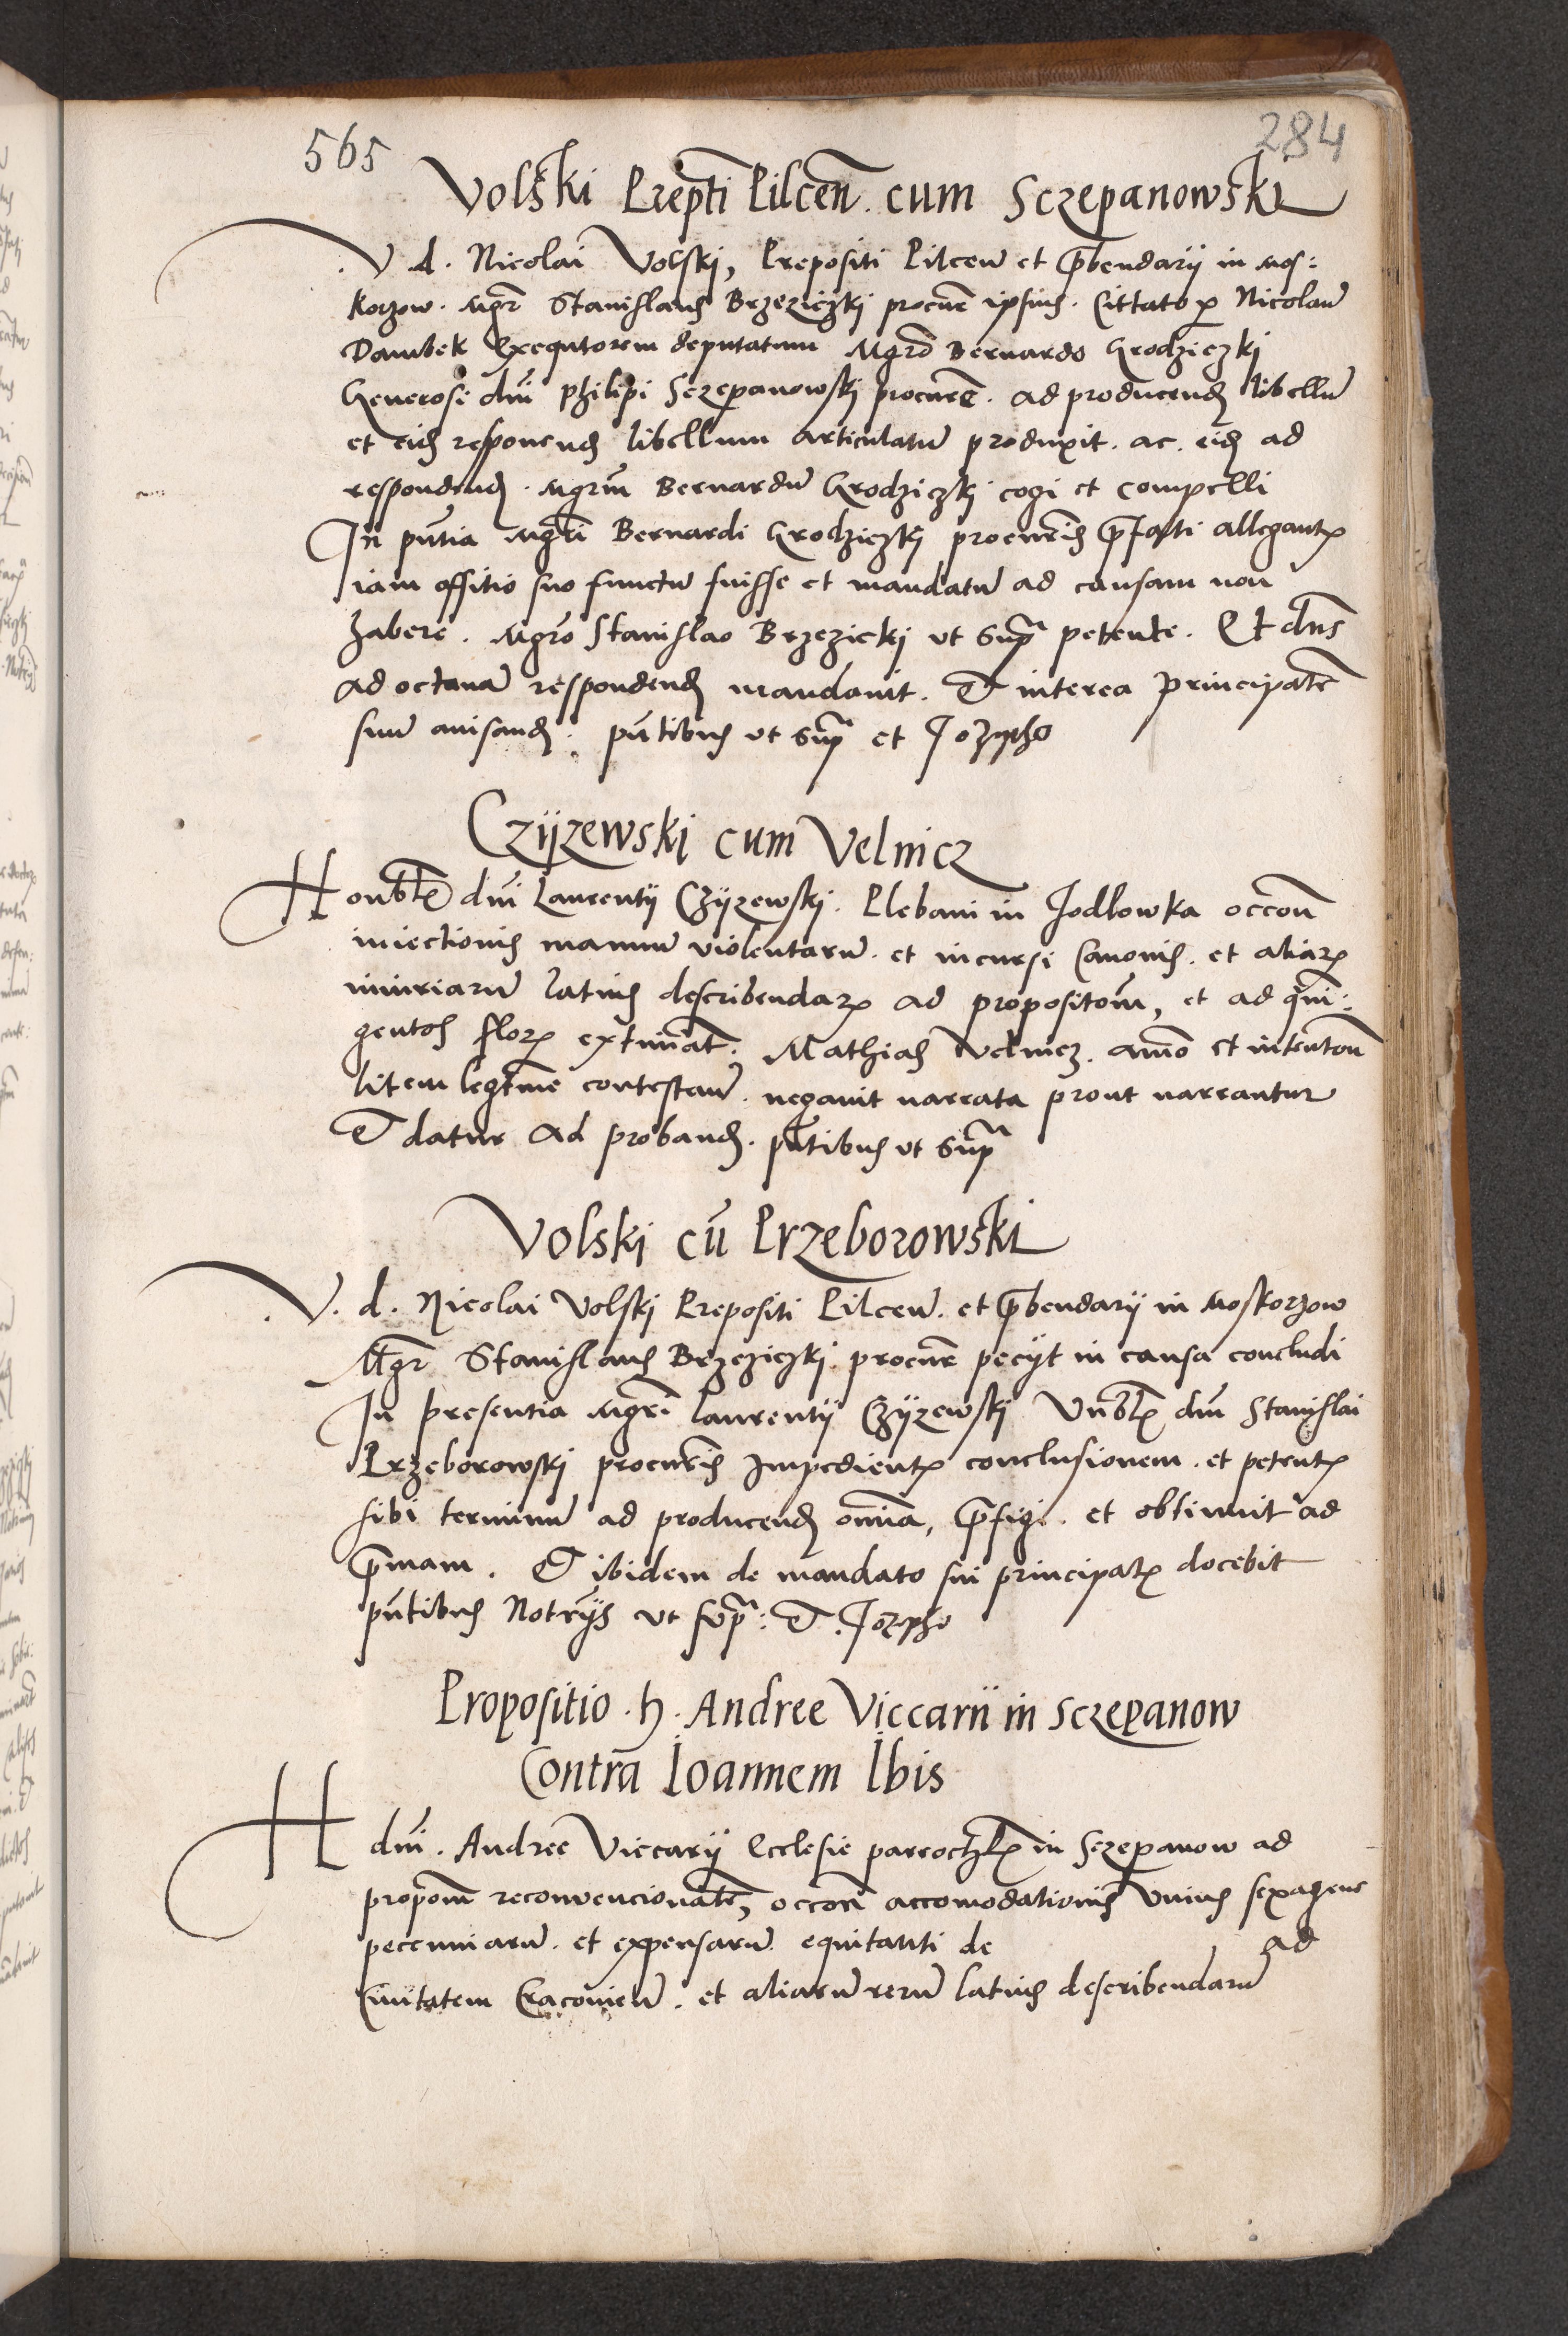 565
284
Volski Prepti Pilcen̄. cum Sczepanowski
V. d. Nicolai Volskj, Prepositi Pilcen̄ et p̄bendarij in Mos:
korzow. Mgr̄ Stanislaus Brzeziczkj procur̄ ipsius. Cittato p Nicolau̅
Dambek Exequtorem deputatum Mgrō Bernardo Grodziczkj
Generosi dni̅ Philipi Sczepanowskj procur̄e. ad producend libellu̅
et eid responend libellum articulatu̅ produxit. ac. eid ad
respondend. Mgrum̅ Bernardu̅ Grodziczkj cogi et compelli
In pn̅tia Mgri̅ Bernardi Grodziczkj procur̄is p̄fati allegant
iam offitio suo functu̅ fuisse et mandatu̅ ad causam non
habere. Mgro̅ Stanislao Brzezickj ut supa̅ petente. Et dn̅s
ad octaua̅ respondend mandauit. Et interea Principale̅
suu̅ auisand. pn̅tibus ut supa̅ et Jozepho
Czijzewski cum Velnicz
Honoblē dni̅ Laurentij Czijzewskj. Plebani in Jodlowka occon̅
iniectionis manuu̅ violentaru̅. et incursi Canonis. et aliar
iniuriaru̅ latius describendar ad propositom̅, et ad qui̅:
gentos flor extimat̅. Mathias Velnicz. ani̅o et intenton̅
litem legtime̅ contestan̅. negauit narrata prout narrantur
Et datur ad proband. pn̅tibus ut supa̅
Volski cu̅ Przeborowski
V. d. Nicolai Volskj Prepositi Pilcen̅. et p̄bendarij in Moskorzow
Mgr̄ Stanislaus Brzeziczkj procur̄ pecijt in causa concludi
In presentia Mgri̅ Laurentij Czijzewskj Vnobl dni̅ Stanislai
Przeborowskj procur̄is Impedient conclusionem. et petent
sibi terminu̅ ad producend omnia̅, p̄figi. et obtinuit ad
p̄mam. Et ibidem de mandato sui principal docebit
pn̅tibus Notrijs ut supa̅: Et. Jozepho
Propositio. h. Andree Viccarii in Sczepanow
Contra Ioannem Ibis
H dni̅. Andree Viccarij Ecclesie parrochl in Sczepanow ad
propom̅ reconvencionale̅, occon̅ accomodationis vnius sexagene
peccuniaru̅. et expensaru̅. equitanti de ad
Ciuitatem Cracouien̅. et aliaru̅ reru̅ latius describendaru̅